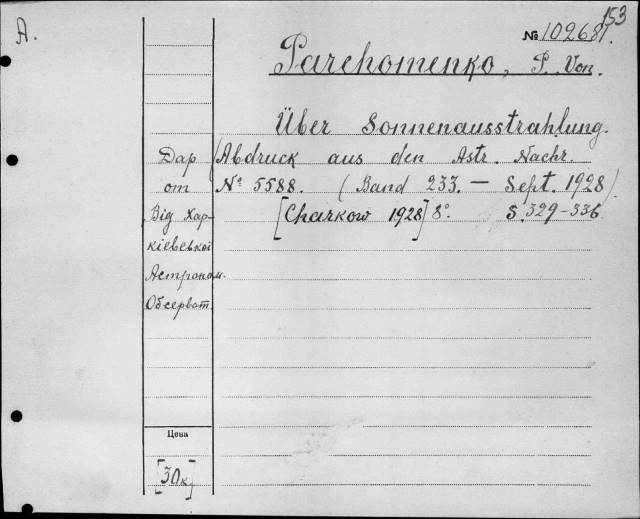 A.
153
№ 102681.
Parchomenko, P. Von.
Über Sonnenausstrahlung.
Дар
от
Від Хар-
кіевської
Астроном.
Обсерват.
(Abdruck aus den Astr. Nachr.
№ 5588. (Band 233. — Sept. 1928)
[Charkow 1928] 8°. S. 329-336
Цена
[30к]